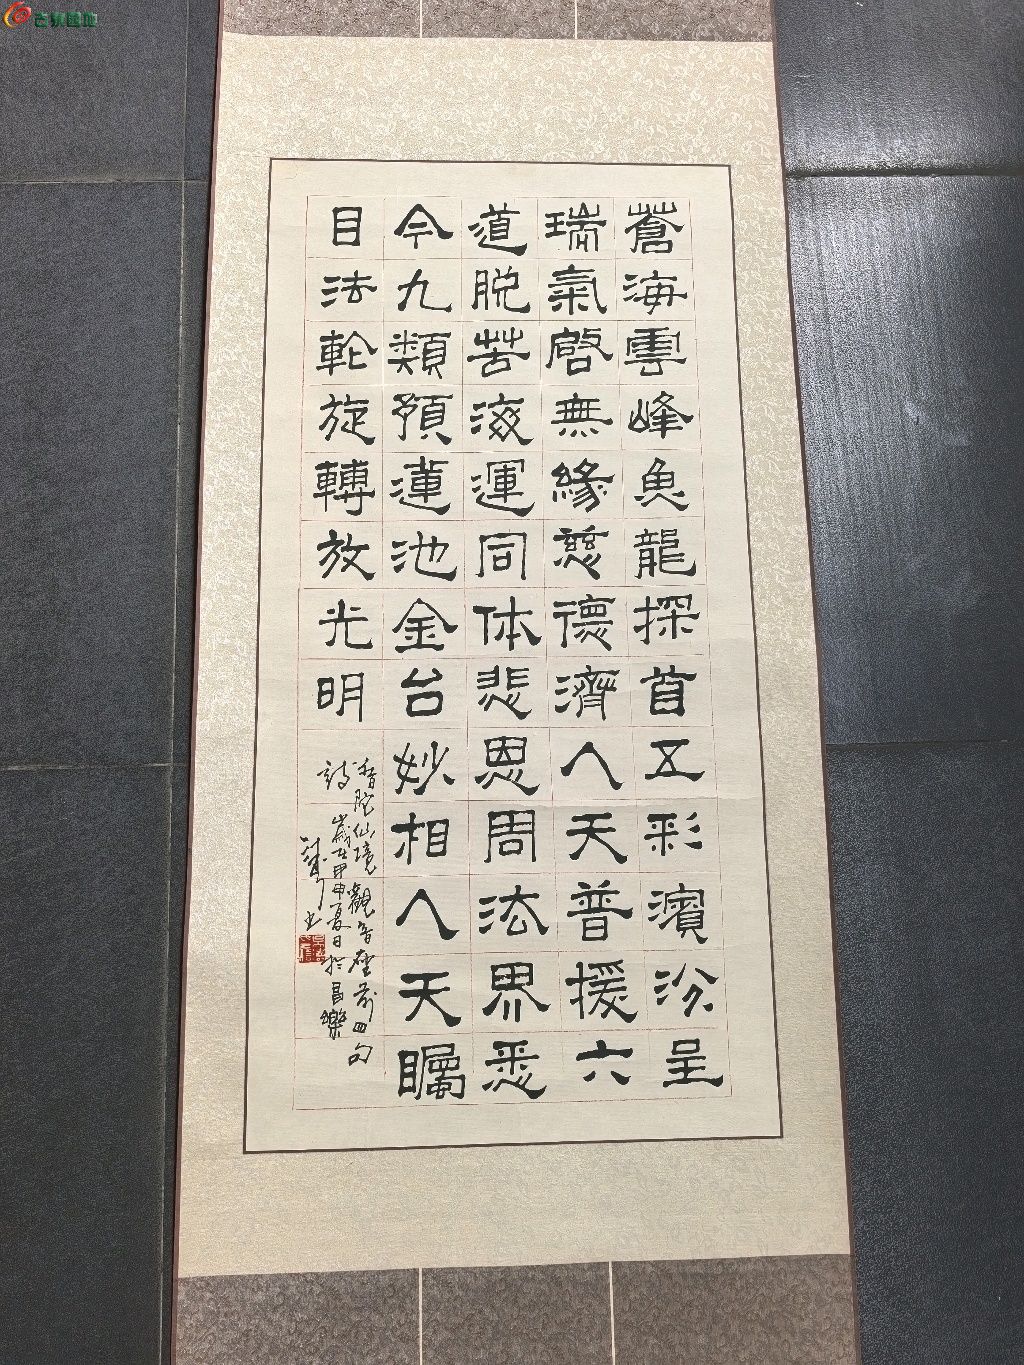 蒼海雲峰魚龍探首五彩濱汾呈
瑞氣啓無緣慈德濟人天普援六
道脱苦海運同体悲恩周法界悉
今九類預蓮池金台妙相人天矚
目法轮旋轉放光明
香陀仙境觀音座前四句
詩歲在甲申夏日於昌樂
书
古泉園地